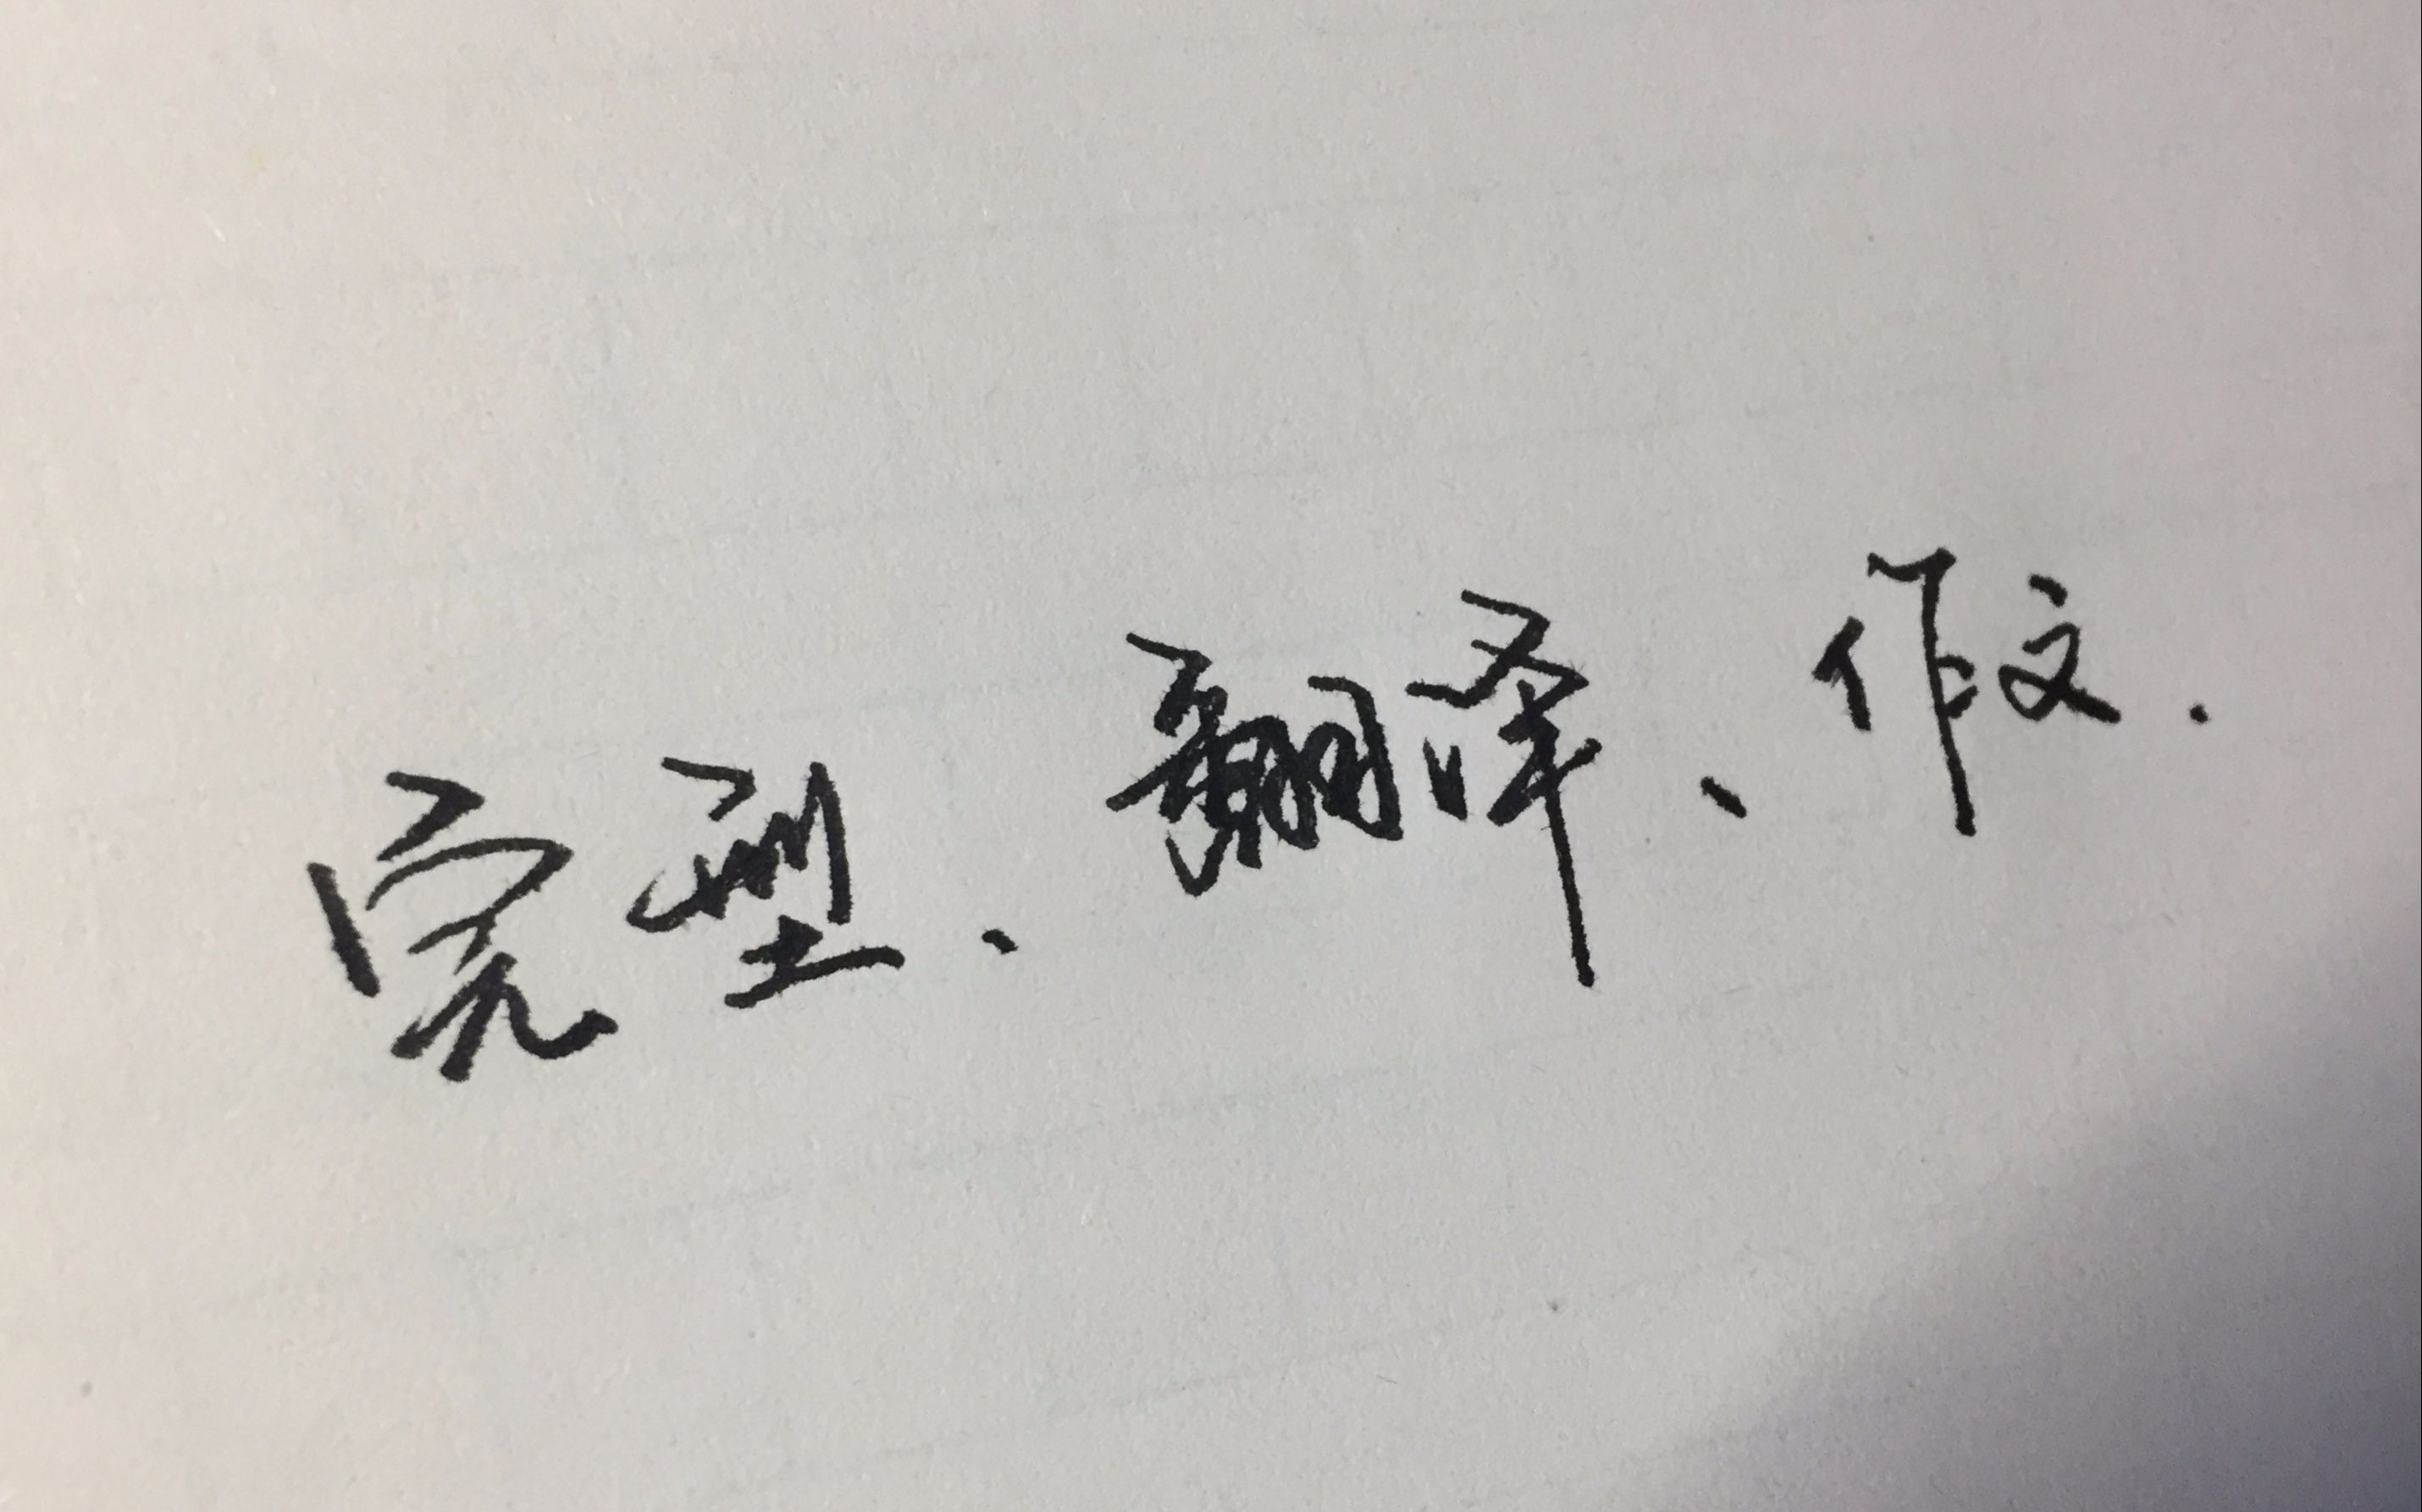 完型、翻译、作文.